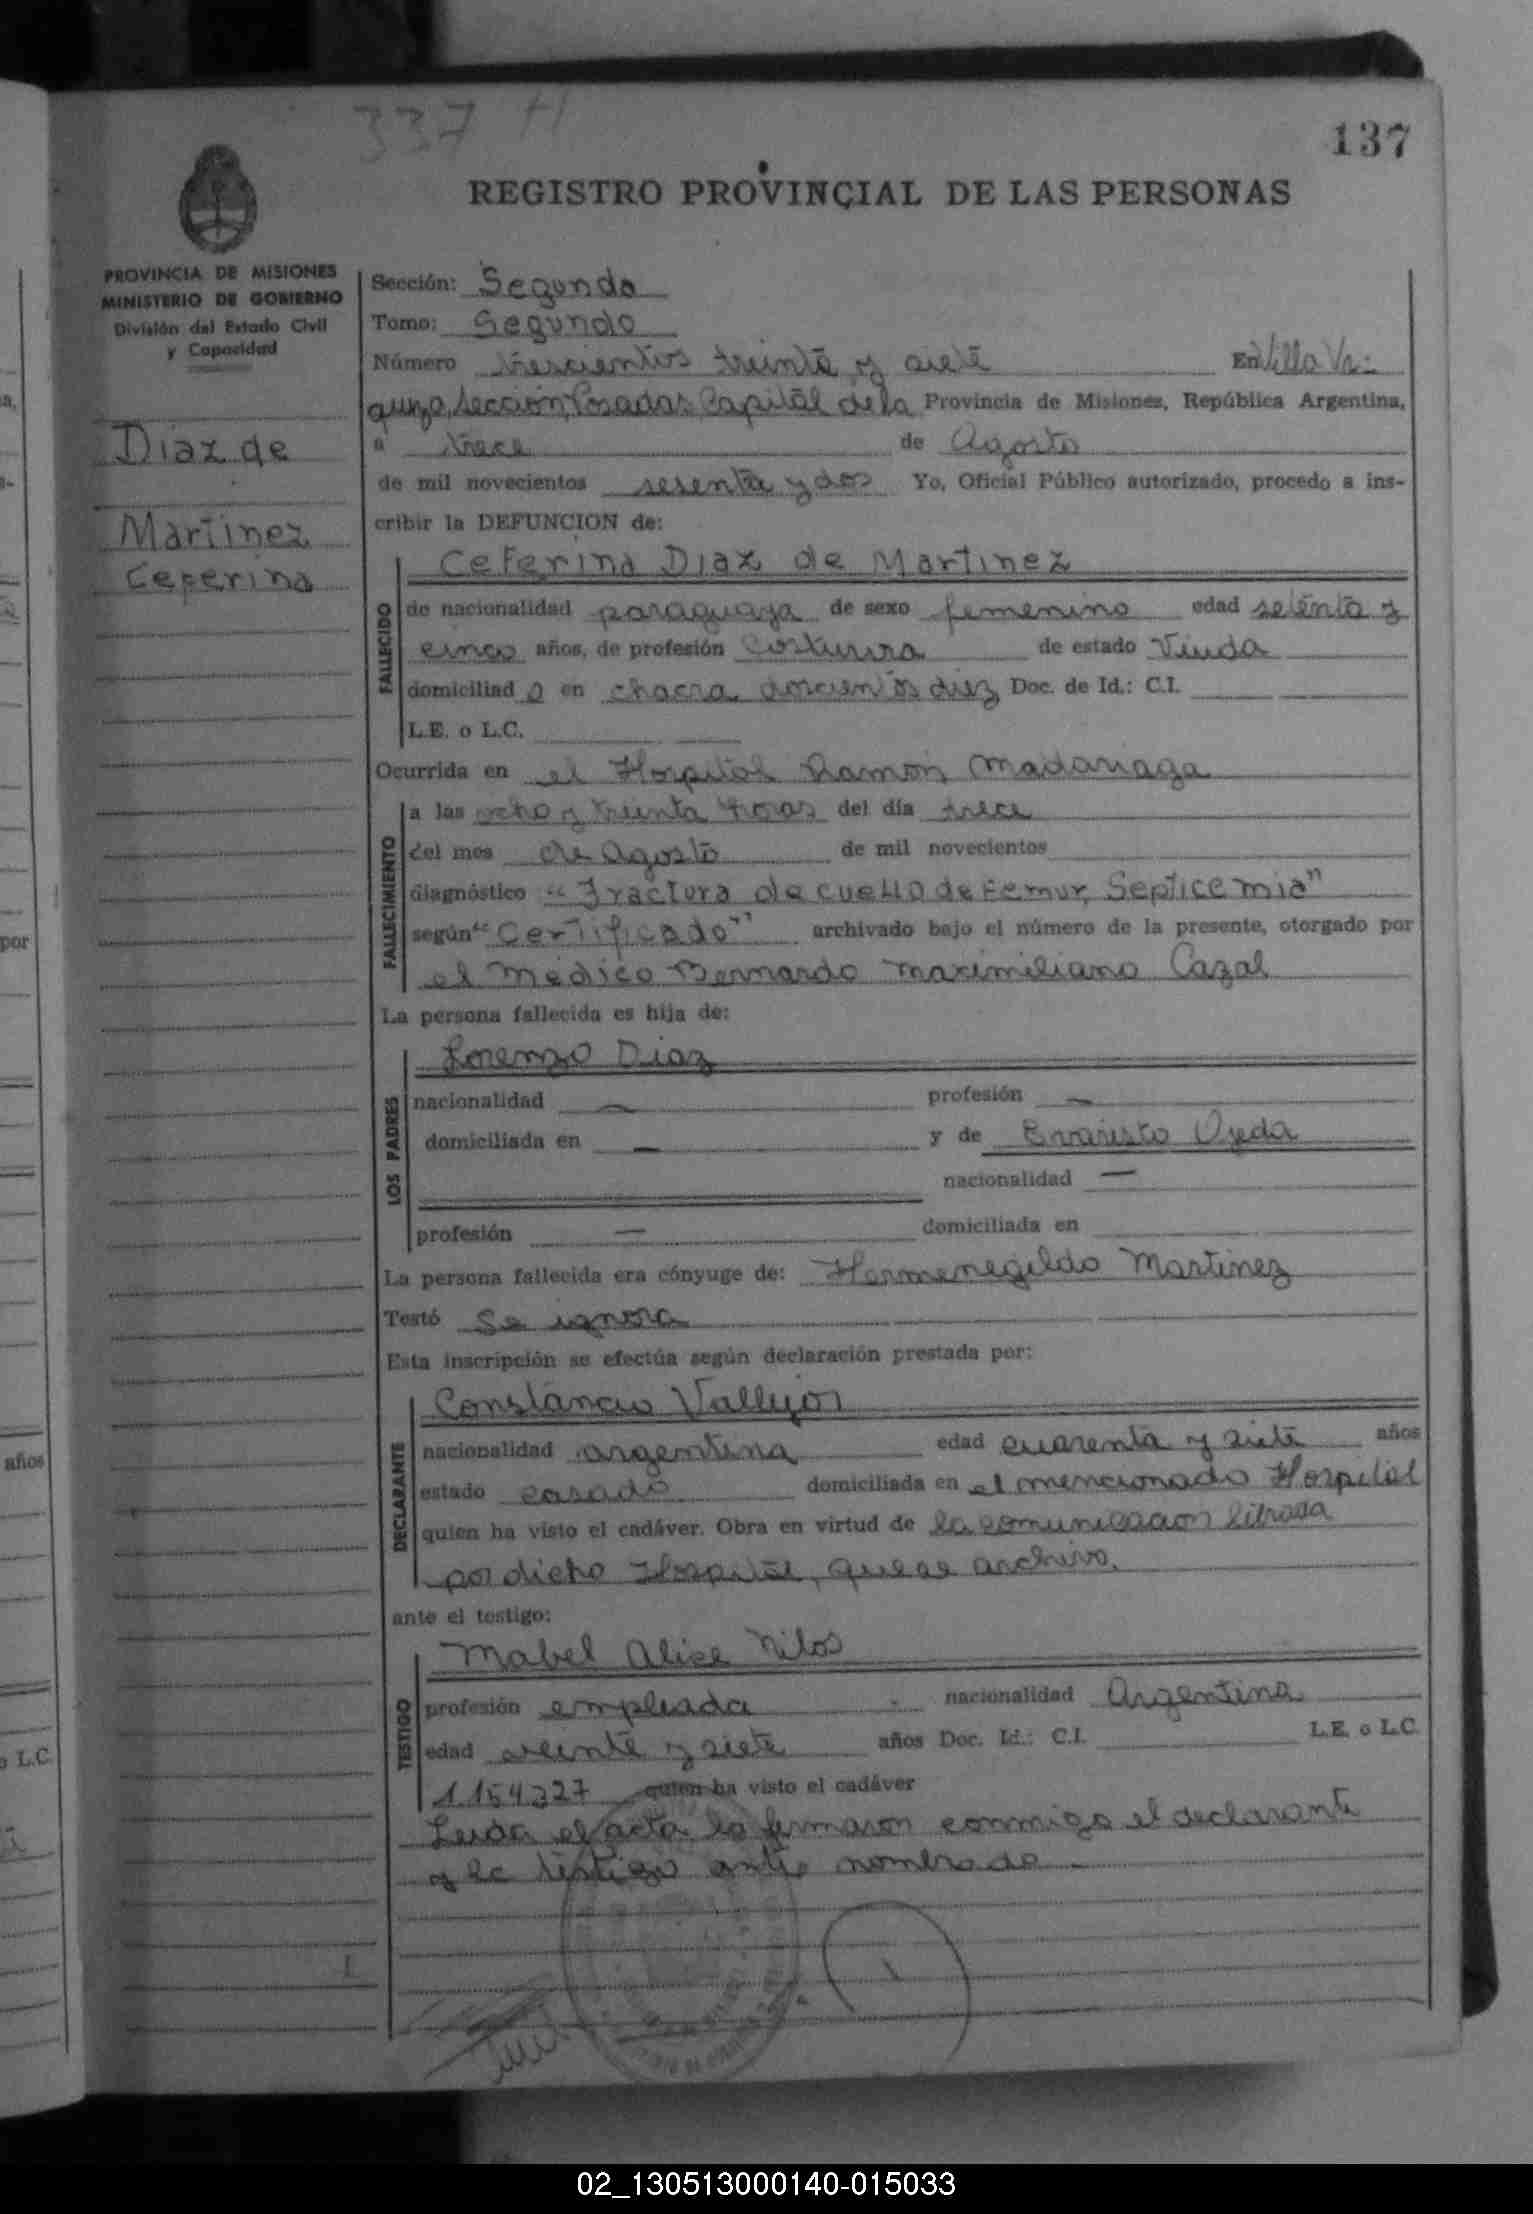 337 H
137
REGISTRO PROVINCIAL DE LAS PERSONAS
PROVINCIA DE MISIONES
MINISTERIO DE GOBIERNO
División del Estado Civil
y Capacidad
Diaz de
Martinez
Ceferina
Sección: Segunda
Tomo: Segundo
Número trescientos treinta y siete En Villa Ur-
quiza, sección, Posadas, Capital de la Provincia de Misiones, República Argentina,
a trece de Agosto
de mil novecientos sesenta y dos Yo, Oficial Público autorizado, procedo a ins-
cribir la DEFUNCION de:
FALLECIDO
Ceferina Diaz de Martinez
de nacionalidad paraguaya de sexo femenino edad setenta y
cinco años, de profesión costurera de estado Viuda
domiciliad a en chacra doscientos diez Doc. de Id.: C.I.
L.E. o L.C.
Ocurrida en el Hospital Ramón Madariaga
FALLECIMIENTO
a las ocho y treinta horas del día trece
del mes de Agosto de mil novecientos
diagnóstico "Fractura de cuello de Femur, Septicemia"
según "Certificado" archivado bajo el número de la presente, otorgado por
el Médico Bernardo Maximiliano Cazal
La persona fallecida es hija de:
LOS PADRES
Lorenzo Diaz
nacionalidad — profesión —
domiciliada en — y de Evaristo Ojeda
nacionalidad —
profesión — domiciliada en
La persona fallecida era cónyuge de: Hermenegildo Martinez
Testó se ignora
Esta inscripción se efectúa según declaración prestada por:
DECLARANTE
Constancio Vallejos
nacionalidad argentina edad cuarenta y siete años
estado casado domiciliada en el mencionado Hospital
quien ha visto el cadáver. Obra en virtud de la comunicacion librada
por dicho Hospital, que se archiva.
ante el testigo:
TESTIGO
Mabel Alice
profesión empleada nacionalidad Argentina
edad veinte y siete años Doc. Id.: C.I. L.E. o L.C.
1.154.327 quien ha visto el cadáver
Leída el acta la firmaron conmigo el declarante
y la testigo antes nombrado
02_130513000140-015033